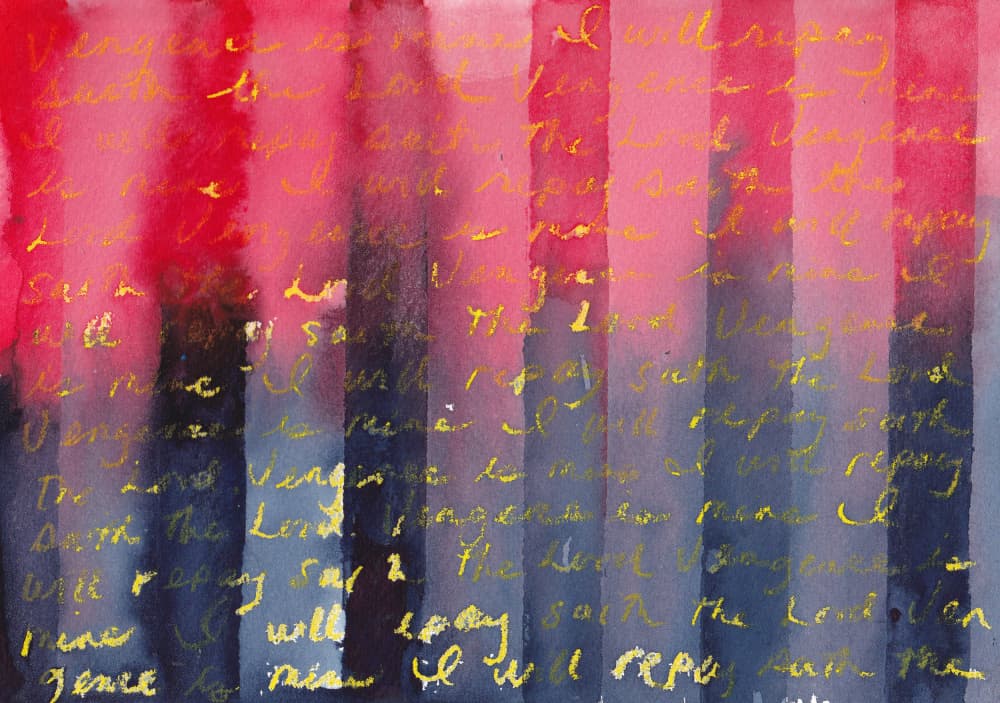 Vengence is mine I will repay
saith the Lord Vengence is mine
I will repay saith the Lord Vengence
is mine I will repay saith the
Lord Vengence is mine I will repay
saith the Lord Vengence is mine I
will repay saith the Lord Vengence
is mine I will repay saith the Lord
Vengence is mine I will repay saith
The Lord Vengence is mine I will repay
saith the Lord Vengence is mine I
will repay saith the Lord Vengence is
mine I will repay saith the Lord Ven
gence is mine I will repay saith the